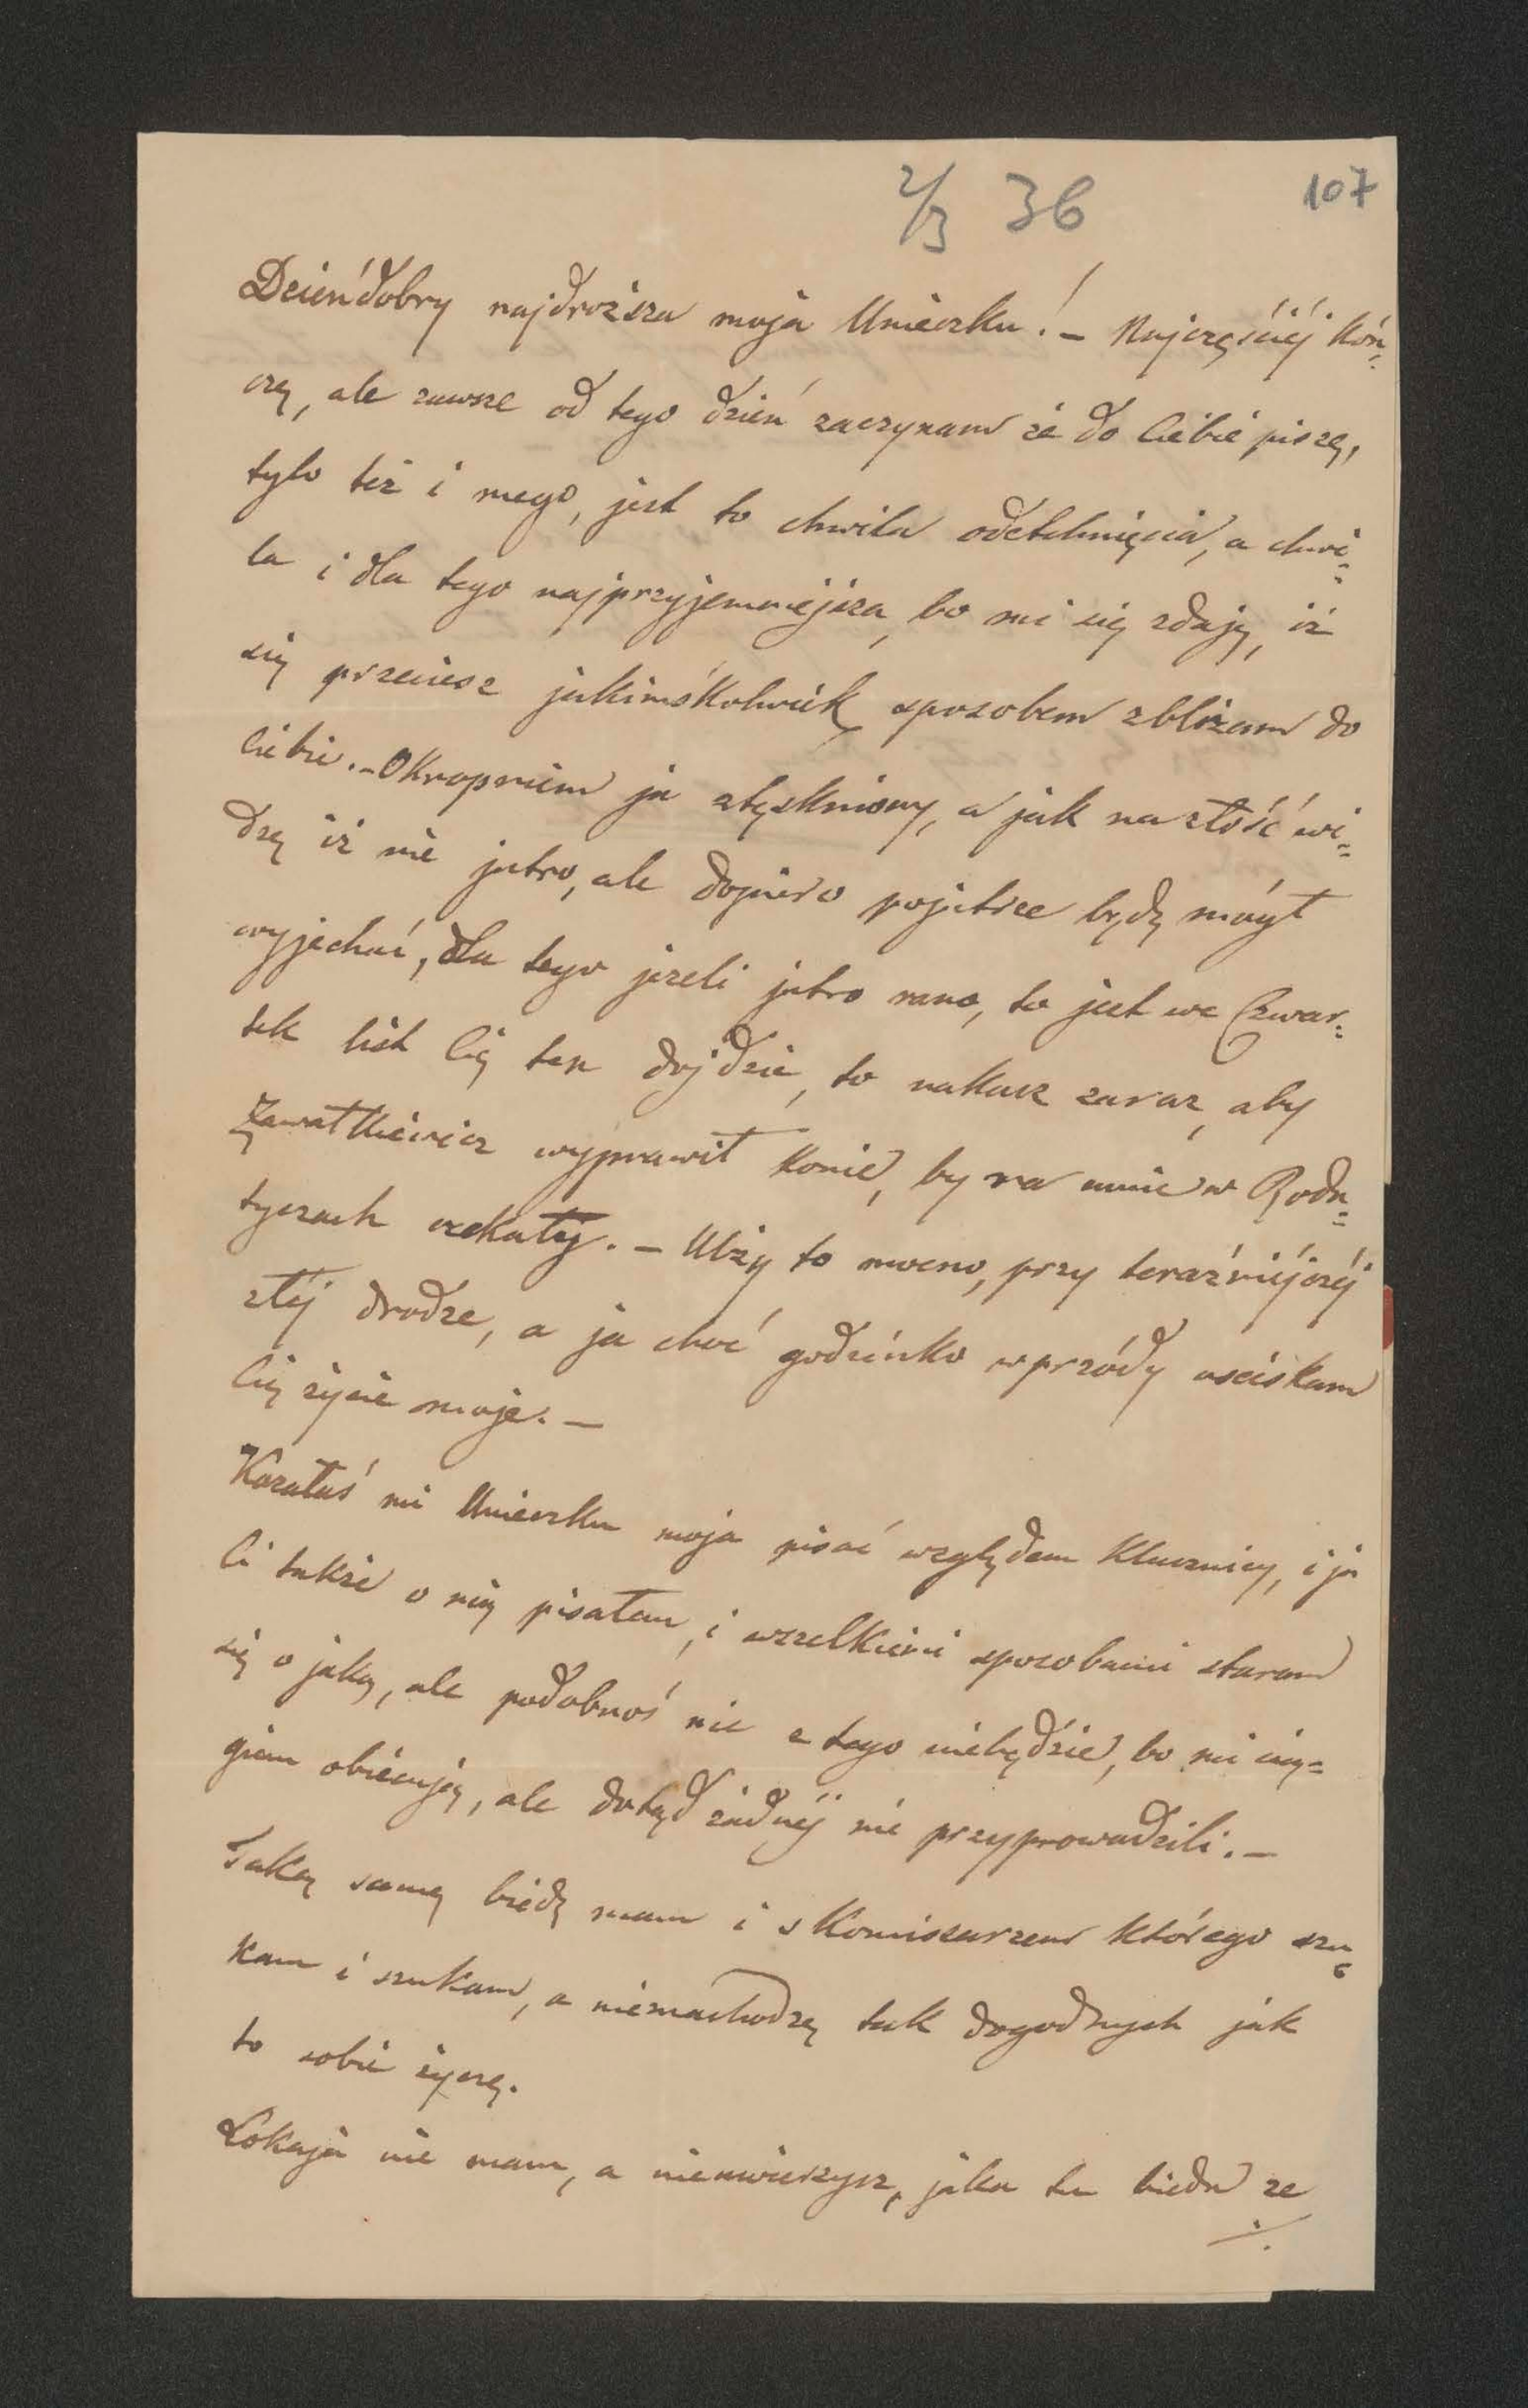 2/3 36
107
Dzień dobry najdroższa moja Unieczku! – Najczęściéj koń=
czę, ale zawsze od tego dzień zaczynam że do Ciebie piszę,
tylo też i mego, jest to chwila odetchnięcia, a chwi=
la i dla tego najprzyjemniejsza, bo mi się zdaję, iż
się przeciesz jakimśkolwiek sposobem zbliżam do
Ciebie. – Okropniem ja stęskniony, a jak na złość wi=
dzę iż nie jutro, ale dopiéro pojutrze będę mógł
wyjechać, dla tego jeżeli jutro rano, to jest we Czwar=
tek list Cię ten dojdzie, to nakaż zaraz, aby
Zawałkiewicz wyprawił konie, by na mnie w Roda=
tyczach czekały. – Ulży to mocno, przy teraźniéjszéj
złéj drodze, a ja choć godzinko wprzódy uściskam
Cię życie moje. –
Kazałaś mi Unieczku moja pisać względem Klucznicy, i ja
Ci także o nią pisałem, i wszelkiemi sposobami staram
się o jaką, ale podobnoś nic z tego niebędzie, bo mi cią=
giem obiecują, ale dotąd żadnéj nie przyprowadzili. –
Taką samą biédę mam i s Komiszarzem którego szu=
kam i szukam, a nieznachodzę tak dogodnych jak
to sobie życzę.
Lokaja nie mam, a nieuwierzysz, jaka tu bieda ze
./.